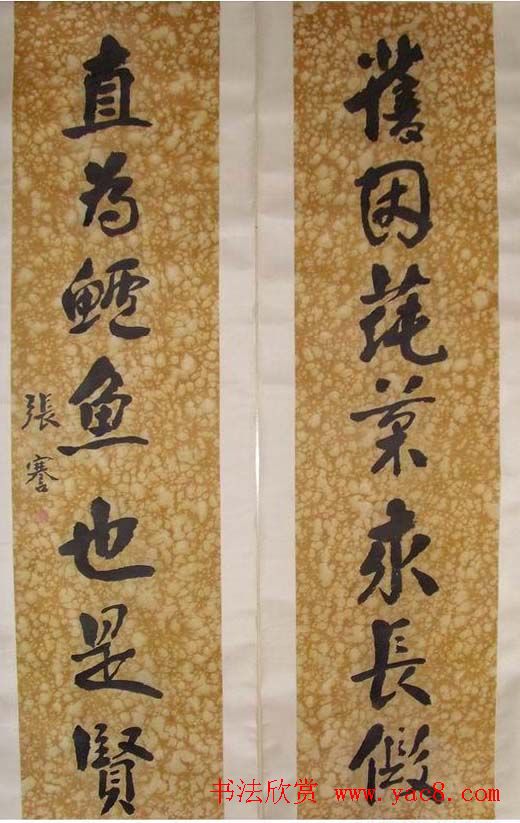 舊因蒓菜求長假
直為鱸魚也是賢
張謇
书法欣赏 www.yac8.com